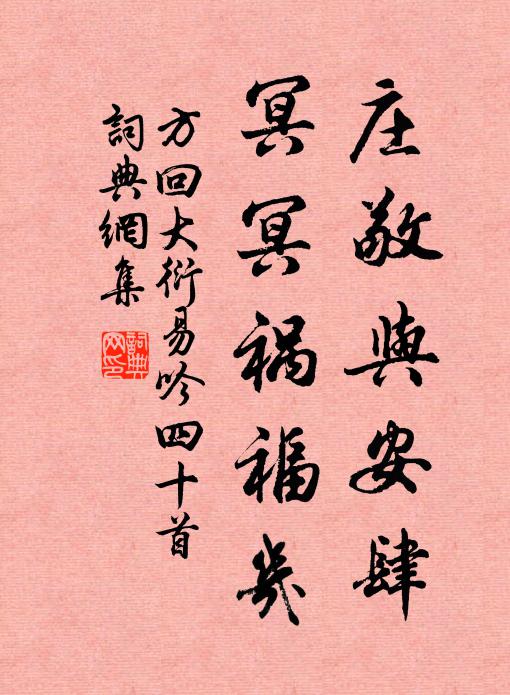 庄敬與安肆
冥冥祸福幾
方回大衍易吟四十首
詞典網集
詞典網印